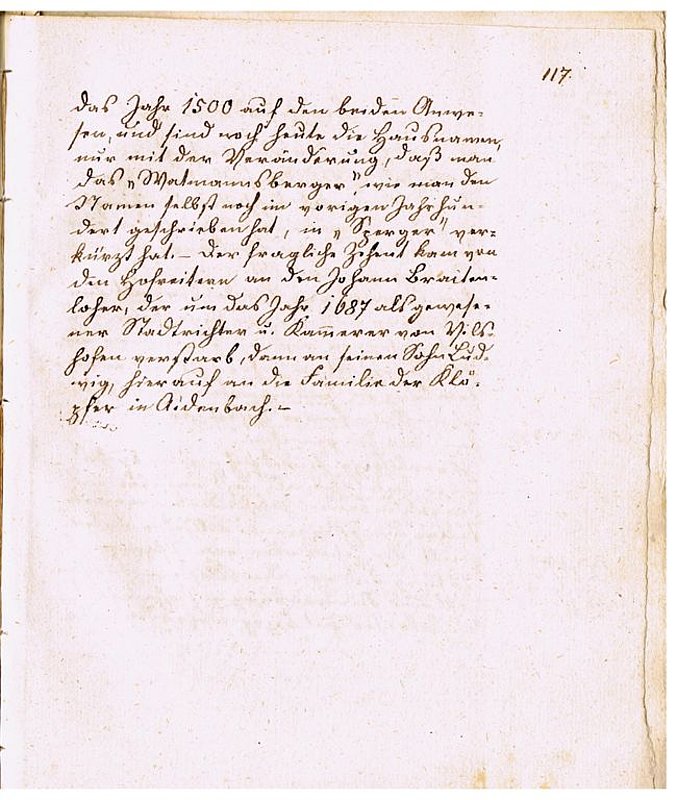 117.
das Jahr 1500 auf den beiden Anwe-
sen, und sind noch heute die Hausnamen,
nur mit der Veränderung, daß man
das „Watmannsberger", wie man den
Namen selbst noch im vorigen Jahrhun-
dert geschrieben hat, in „Sperger" ver-
kürzt hat. – Der fragliche Zehent kam von
den Hofreitern an den Johann Braiten-
loher, der um das Jahr 1687 als gewese-
ner Stadtrichter u. Kam̅erer von Vils-
hofen verstarb, dann an seinen Sohn Lud-
wig, hierauf an die Familie der Klö-
pfer in Aidenbach. –